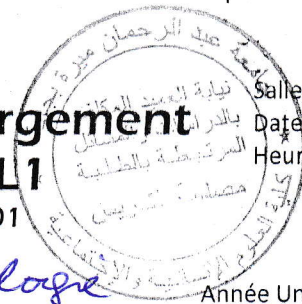 Salle
rgement
Date
Heur
L1
01
logie
Année Un
جامعة عبد الرحمان ميرة
نيابة العميد المكلفة
بالدراسات والمسائل
المرتبطة بالطلبة
مصلحة التدريس
كلية العلوم الإنسانية والاجتماعية